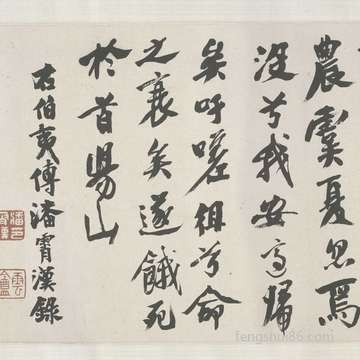 農虞夏忽焉
沒兮我安適歸
矣吁嗟徂兮命
之衰矣遂餓死
於首陽山
右伯夷傳潘霄漢錄
fengshui86.com